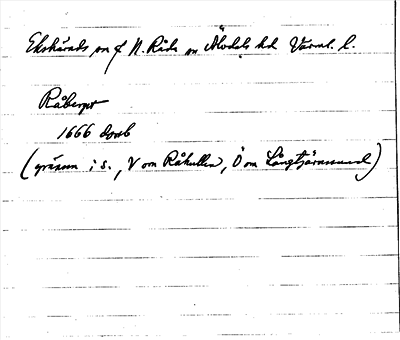 Ekshärads sn o N. Råda sn Älvdals hd Värml. l.
Råberget
1666 domb
(gränsm i s., V om Råkullen, Ö om Långtjärnsund)